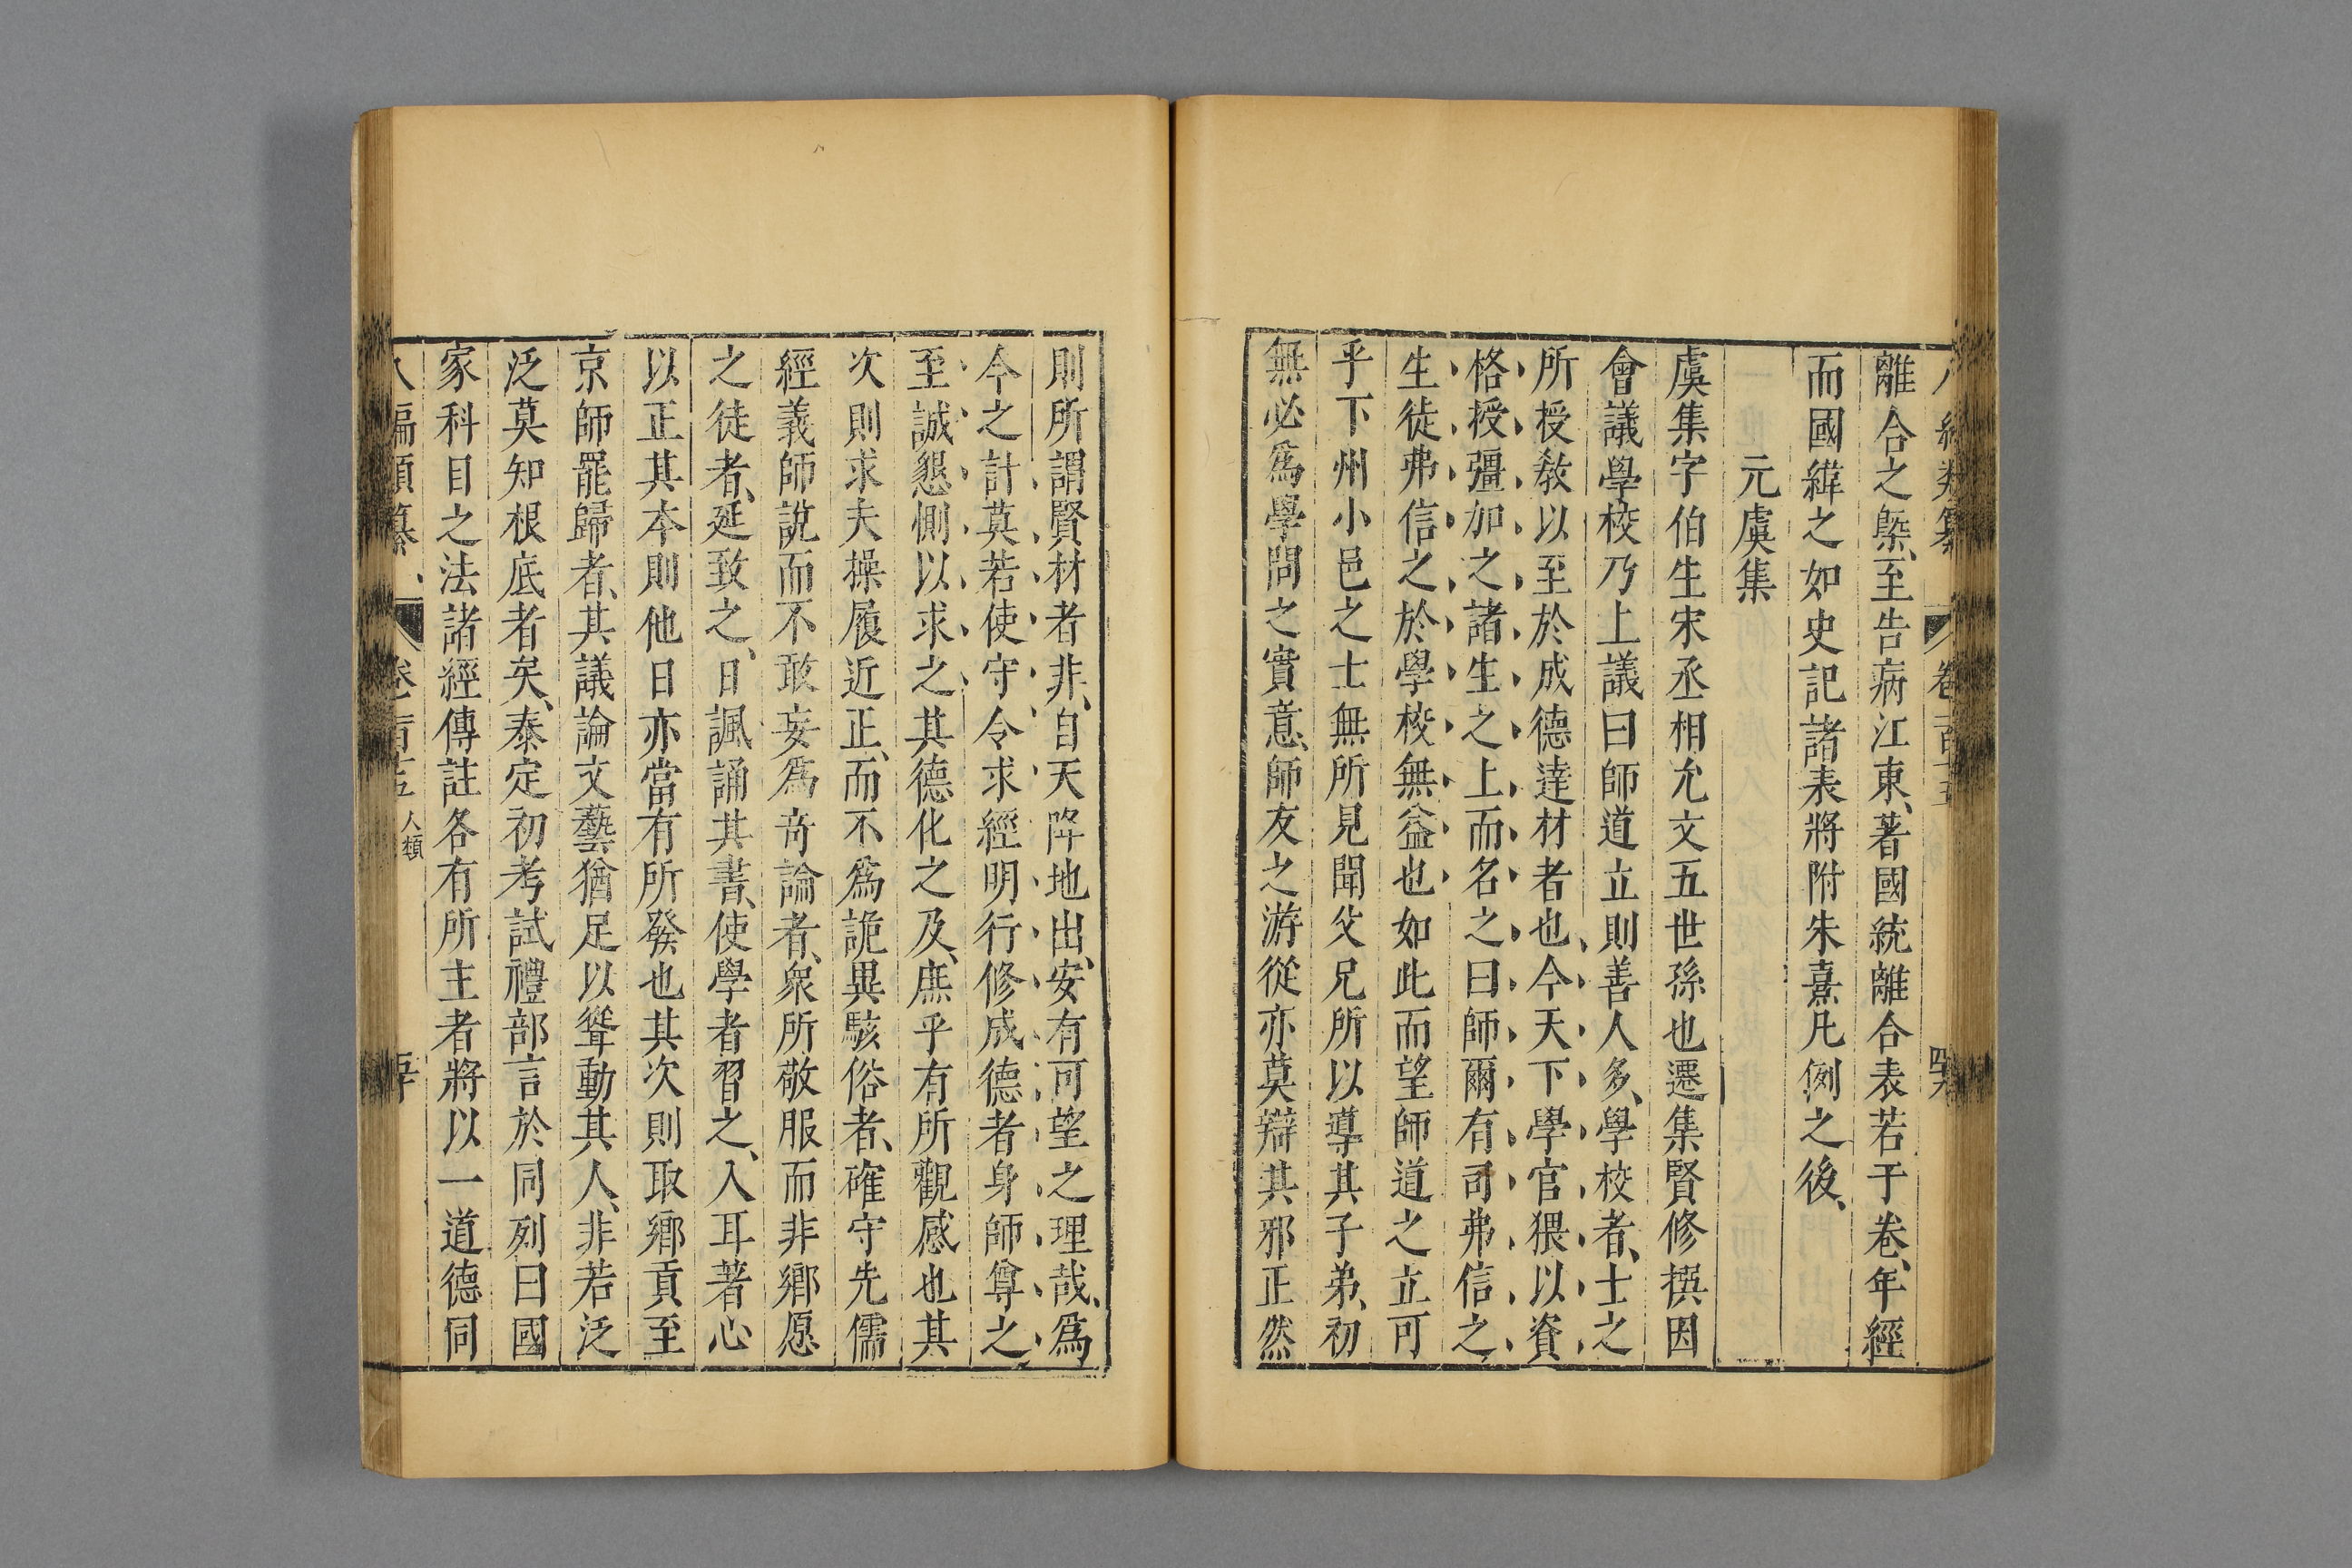 離合之槩、至告病江東、著國統離合表若干卷、年經
而國緯之如史記諸表將附朱熹凡例之後、
元虞集
虞集字伯生宋丞相允文五世孫也遷集賢修撰因
會議學校乃上議曰師道立則善人多、學校者、士之
所授敎以至於成德達材者也、今天下學官猥以資
格授彊加之諸生之上而名之曰師爾有司弗信之
生徒弗信之於學校無益也如此而望師道之立可
乎下州小邑之士無所見聞父兄所以導其子弟、初
無必爲學問之實意、師友之游從亦莫辯其邪正然
則所謂賢材者非、自天降地出、安有可望之理哉、爲
今之計莫若使守令求經明行修成德者身師尊之
至誠懇惻以求之其德化之及、庶乎有所觀感也其
次則求夫操履近正、而不爲詭異駭俗者、確守先儒
經義師說而不敢妄爲奇論者、衆所敬服而非鄉愿
之徒者、延致之、日諷誦其書、使學者習之、入耳著心
以正其本則他日亦當有所發也其次則取鄉貢至
京師罷歸者、其議論文藝猶足以聳動其人、非若泛
泛莫知根底者矣、泰定初考試禮部言於同列曰國
家科目之法諸經傳註各有所主者將以一道德同
人類